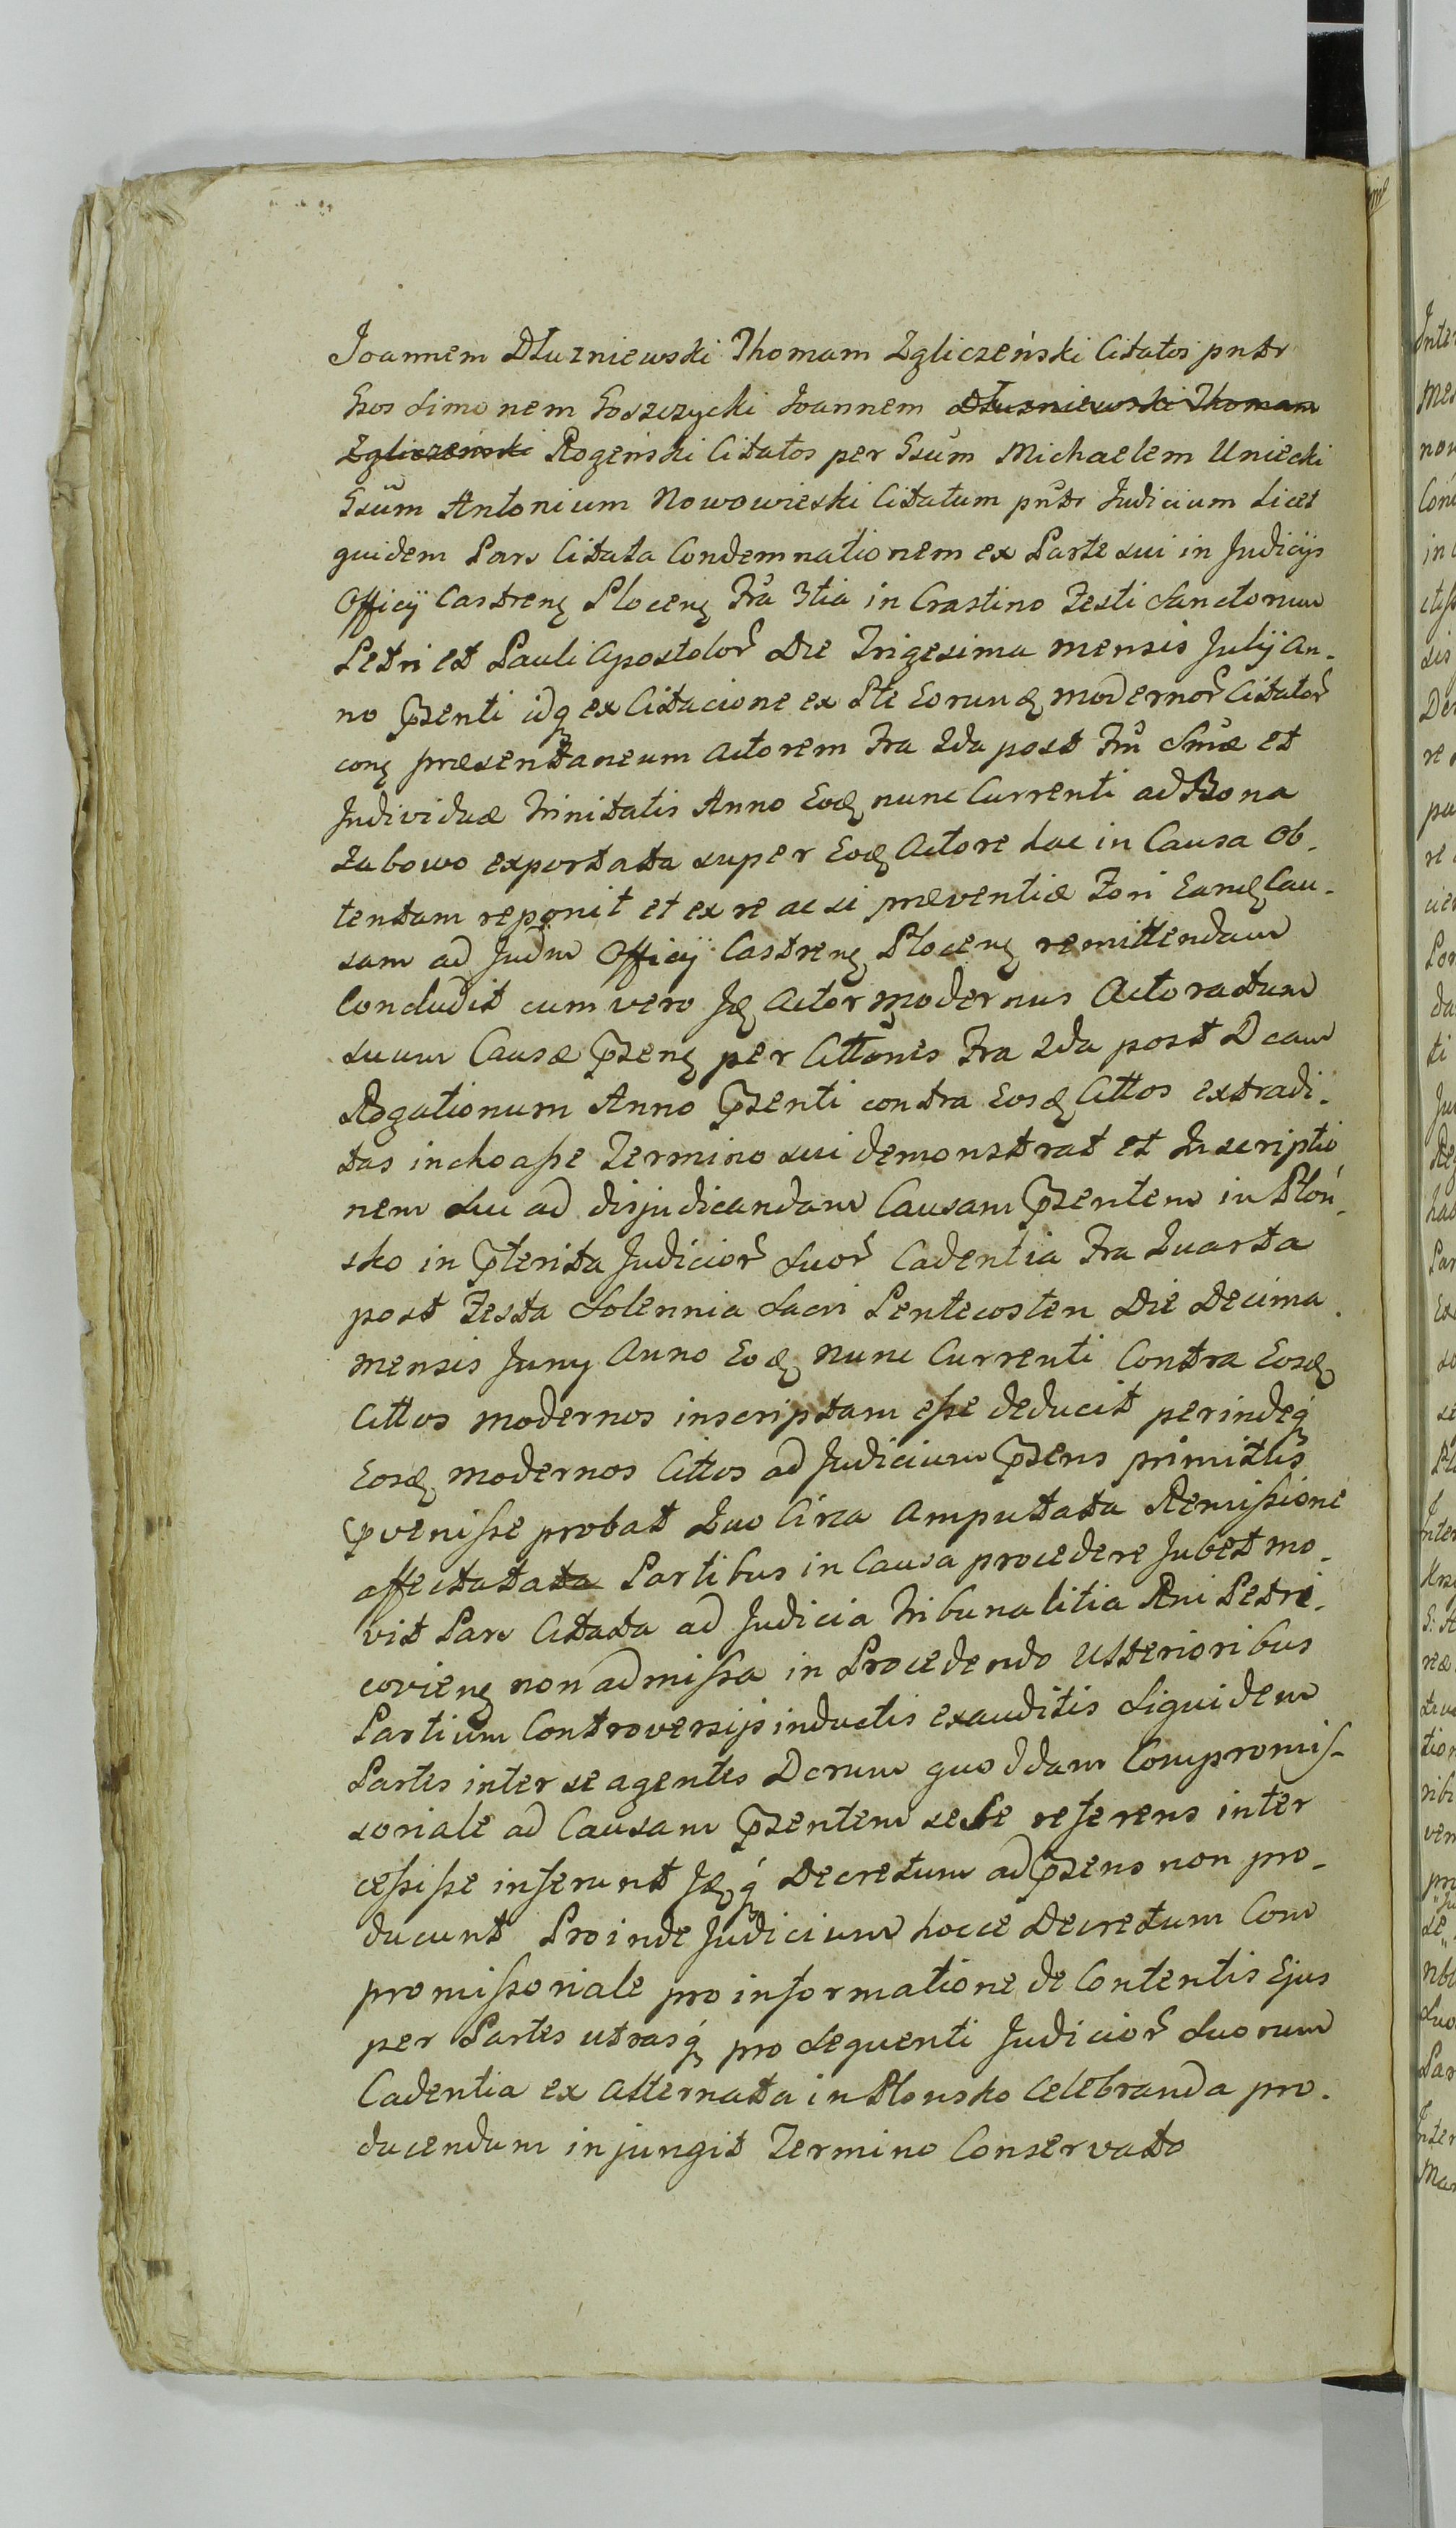 Joannem Dłużniewski Thomam Zgliczeński Citatos pntr
Gsos Simonem Goszczycki Joannem Dłuzniewski Thomam
Zgliczeński Rogeński Citatos per Gsum Michaelem Uniecki
Gsum Antonium Nowowieski Citatum pntr Judicium Licet
quidem Pars Citata Condemnationem ex Parte sui in Judicijs
Officÿ Castren Plocen Fra 3tia in Crastino Festi Sanctorum
Petri et Pauli Apostolor Die Trigesima mensis Julij An-
no Psenti idq ex Citacione ex Pte Eorund modernor Citator
con præsentaneum Actorem Fra 2da post Fm Smæ et
Individuæ Trinitatis Anno Eod nunc Currenti ad Bona
Zabowo exportata super Eod Actore hac in Causa Ob-
tentam reponit et ex re ac si præventiæ Fori Eand Cau-
sam ad Judm Officÿ Castren Plocen remittendam
Concludit cum vero Jd Actor modernus Actoratum
suum Causæ Psen per Cittones Fra 2da post Dcam
Rogationum Anno Psenti contra Eosd Cittos extradi-
tas inchoasse Termino sui demonstrat et Inscriptio
nem Sui ad disjudicandam Causam Psentem in Płoń-
sko in Pterita Judicior Suor Cadentia Fra Quarta
post Festa Solennia Sacri Pentecosten Die Decima
mensis Juny Anno Eod nunc Currenti Contra Eosd
Cittos modernos inscriptam esse deducit perindeq
Eosd modernos Cittos ad Judicium Psens primitus
Pvenisse probat Quo Circa Amputata Remissione
affectatata Partibus in Causa procedere Jubet mo-
vit Pars Citata ad Judicia Tribunalitia Rni Petri-
covien non admissa in Procedendo Ulterioribus
Partium Controversijs inductis exauditis Siquidem
Partes inter se agentes Dcrum quoddam Compromis-
soriale ad Causam Psentem sese referens inter
cessisse inferunt Jdq Decretum ad Psens non pro-
ducunt Proinde Judicium hocce Decretum Com
promissoriale pro informatione de Contentis Ejus
per Partes utrasq pro Sequenti Judicior Suorum
Cadentia ex Alternata in Płonsko Celebranda pro-
ducendum injungit Termino Conservato